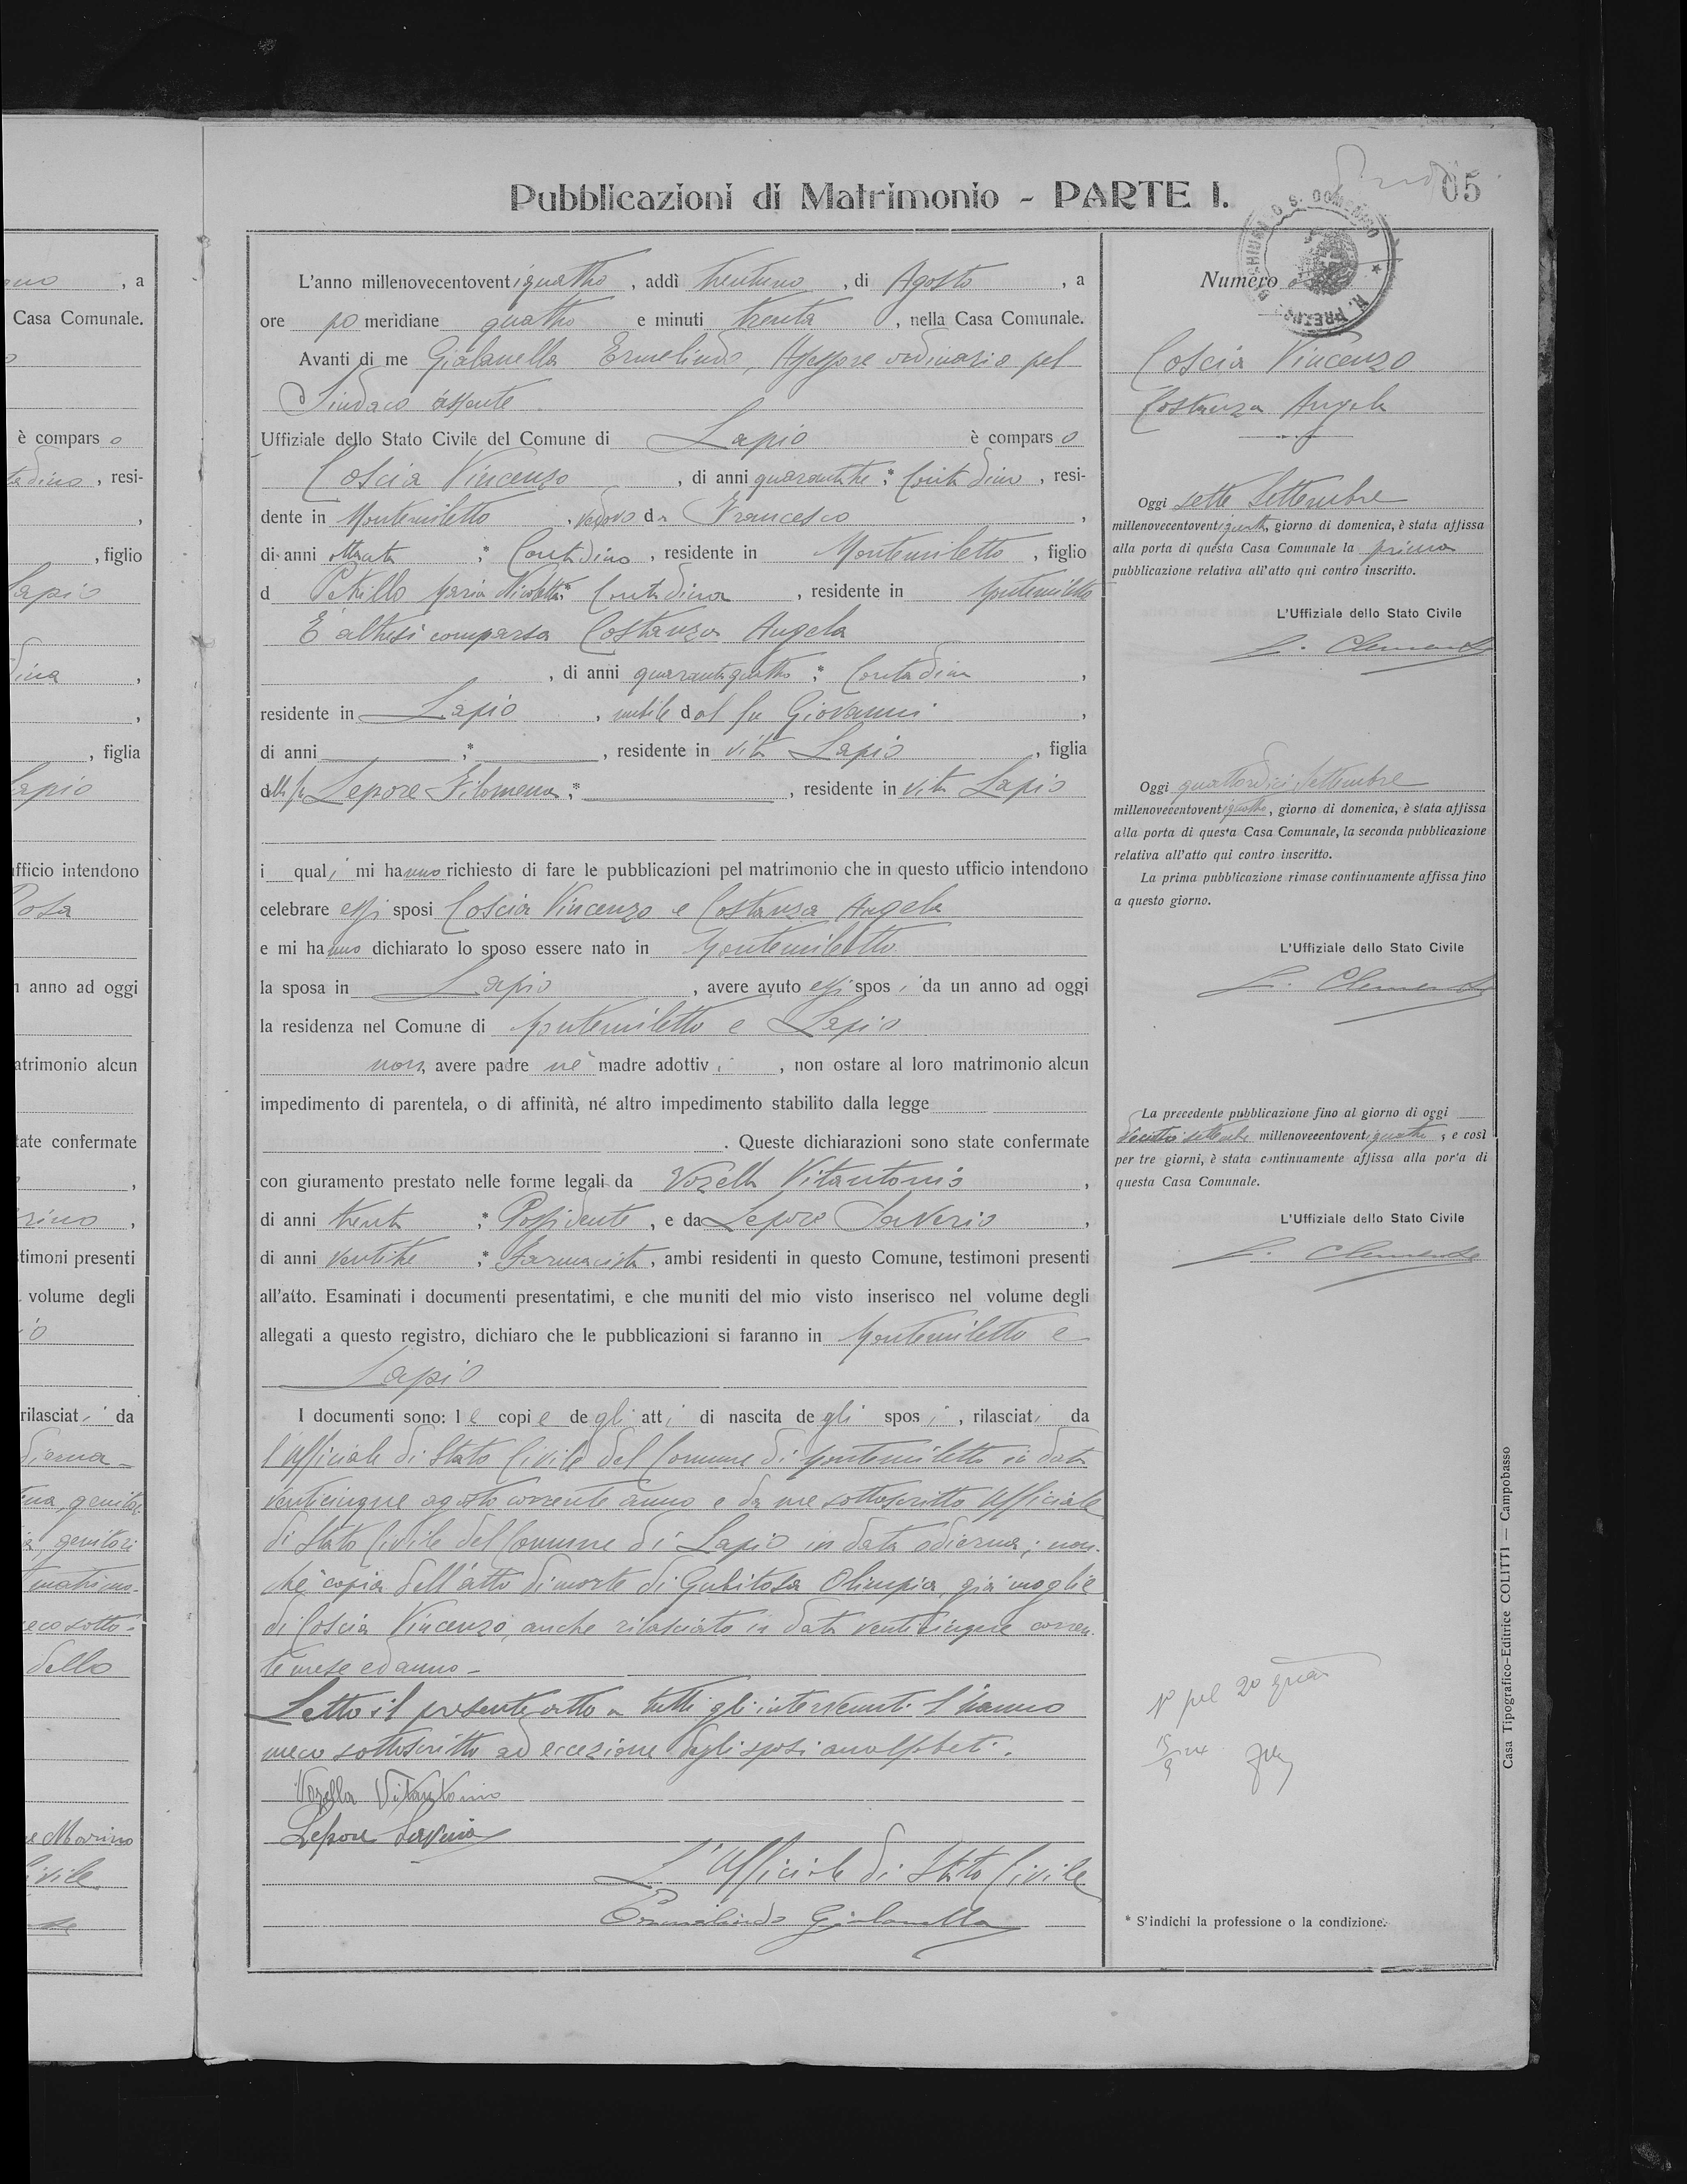 Pubblicazioni di Matrimonio - PARTE I.
05
L'anno millenovecentoventiquattro, addì trentuno, di Agosto, a
ore pomeridiane quattro e minuti trenta, nella Casa Comunale.
Avanti di me Gialanella Ermelindo, Assessore ordinario pel
Sindaco assente
Uffiziale dello Stato Civile del Comune di Lapio è comparso
Coscia Vincenzo, di anni quarantatre; * Contadino, resi-
dente in Montemiletto, vedovo da Francesco,
di anni ottanta; * Contadino, residente in Montemiletto, figlio
d Petrillo Maria Nicoletta * Contadina, residente in Montemiletto
È altresì comparsa Costanza Angela
, di anni quarantaquattro; * Contadina,
residente in Lapio, nubile dal fu Giovanni,
di anni ; * , residente in vita Lapio, figlia
della fu Lepore Filomena; * , residente in vita Lapio
i quali mi hanno richiesto di fare le pubblicazioni pel matrimonio che in questo ufficio intendono
celebrare essi sposi Coscia Vincenzo e Costanza Angela
e mi hanno dichiarato lo sposo essere nato in Montemiletto
la sposa in Lapio, avere avuto essi sposi da un anno ad oggi
la residenza nel Comune di Montemiletto e Lapio
non avere padre nè madre adottivi, non ostare al loro matrimonio alcun
impedimento di parentela, o di affinità, né altro impedimento stabilito dalla legge
. Queste dichiarazioni sono state confermate
con giuramento prestato nelle forme legali da Vozella Vitantonio,
di anni trenta; * Possidente, e da Lepore Saverio,
di anni ventitre; * Farmacista, ambi residenti in questo Comune, testimoni presenti
all'atto. Esaminati i documenti presentatimi, e che muniti del mio visto inserisco nel volume degli
allegati a questo registro, dichiaro che le pubblicazioni si faranno in Montemiletto e
Lapio
I documenti sono: le copie degli atti di nascita degli sposi, rilasciati da
l'Ufficiale di Stato Civile del Comune di Montemiletto in data
venticinque agosto corrente anno e da me sottoscritto Ufficiale
di Stato Civile del Comune di Lapio in data odierna; non-
chè copia dell'atto di morte di Gubitosa Olimpia, già moglie
di Coscia Vincenzo, anche rilasciato in data venticinque corren-
te mese ed anno -
Letto il presente atto a tutti gli intervenuti l'hanno
meco sottoscritto ad eccezione degli sposi analfabeti.
Vozella Vitantonio
Lepore Saverio
L'Ufficiale di Stato Civile
Ermelindo Gialanella
Numero
Coscia Vincenzo
Costanza Angela
Oggi sette Settembre
millenovecentoventiquattro, giorno di domenica, è stata affissa
alla porta di questa Casa Comunale la prima
pubblicazione relativa all'atto qui contro inscritto.
L'Uffiziale dello Stato Civile
L. Clemente
Oggi quattordici Settembre
millenovecentoventiquattro, giorno di domenica, è stata affissa
alla porta di questa Casa Comunale, la seconda pubblicazione
relativa all'atto qui contro inscritto.
La prima pubblicazione rimase continuamente affissa fino
a questo giorno.
L'Uffiziale dello Stato Civile
L. Clemente
La precedente pubblicazione fino al giorno di oggi
settembre millenovecentoventiquattro, e così
per tre giorni, è stata continuamente affissa alla porta di
questa Casa Comunale.
L'Uffiziale dello Stato Civile
L. Clemente
* S'indichi la professione o la condizione.
Casa Tipografico-Editrice COLITTI — Campobasso
, a
Casa Comunale.
è comparso
, resi-
, figlio
Lapio
, figlia
Lapio
ufficio intendono
Rosa
n anno ad oggi
atrimonio alcun
tate confermate
timoni presenti
volume degli
rilasciati da
genitori
dello